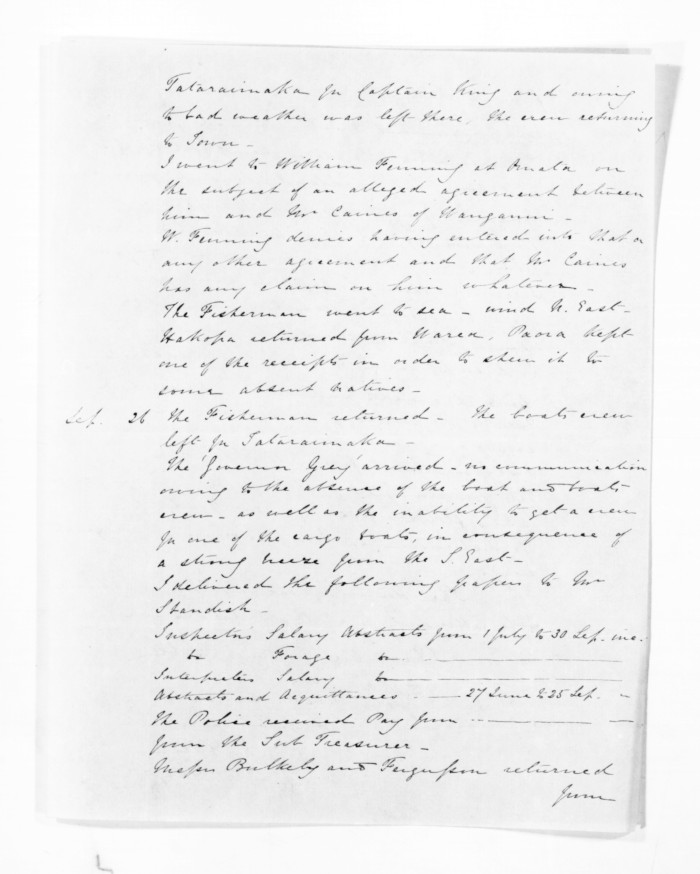 Tataraimaka for Captain King and owing
to bad weather was left there, the crew returning
to Town -
I went to William Fenning at Omata on
the subject of an alleged agreement between
him and Mr Caines of Wanganui -
W. Fenning denies having entered into that or
any other agreement and that Mr Caines
has any claim on him whatever -
The Fisherman went to sea - wind N. East -
Hakopa returned from Warea, Paora kept
one of the receipts in order to shew it to
some absent natives -
Sep. 26 The Fisherman returned - The boats crew
left for Tataraimaka -
The 'Governor Grey' arrived - no communication
owing to the absence of the boat and boats
crew - as well as, the inability to get a crew
for one of the cargo boats, in consequence of
a strong breeze from the S. East -
I delivered the following papers to Mr
Standish -
Inspectors Salary Abstracts from 1 July to 30 Sep. inc.
do Forage do
Interpreters Salary do
Abstracts and Acquittances - 27 June to 25 Sep. "
The Police received Pay from
from the Sub Treasurer -
Messrs Bulkely and Fergusson returned
from